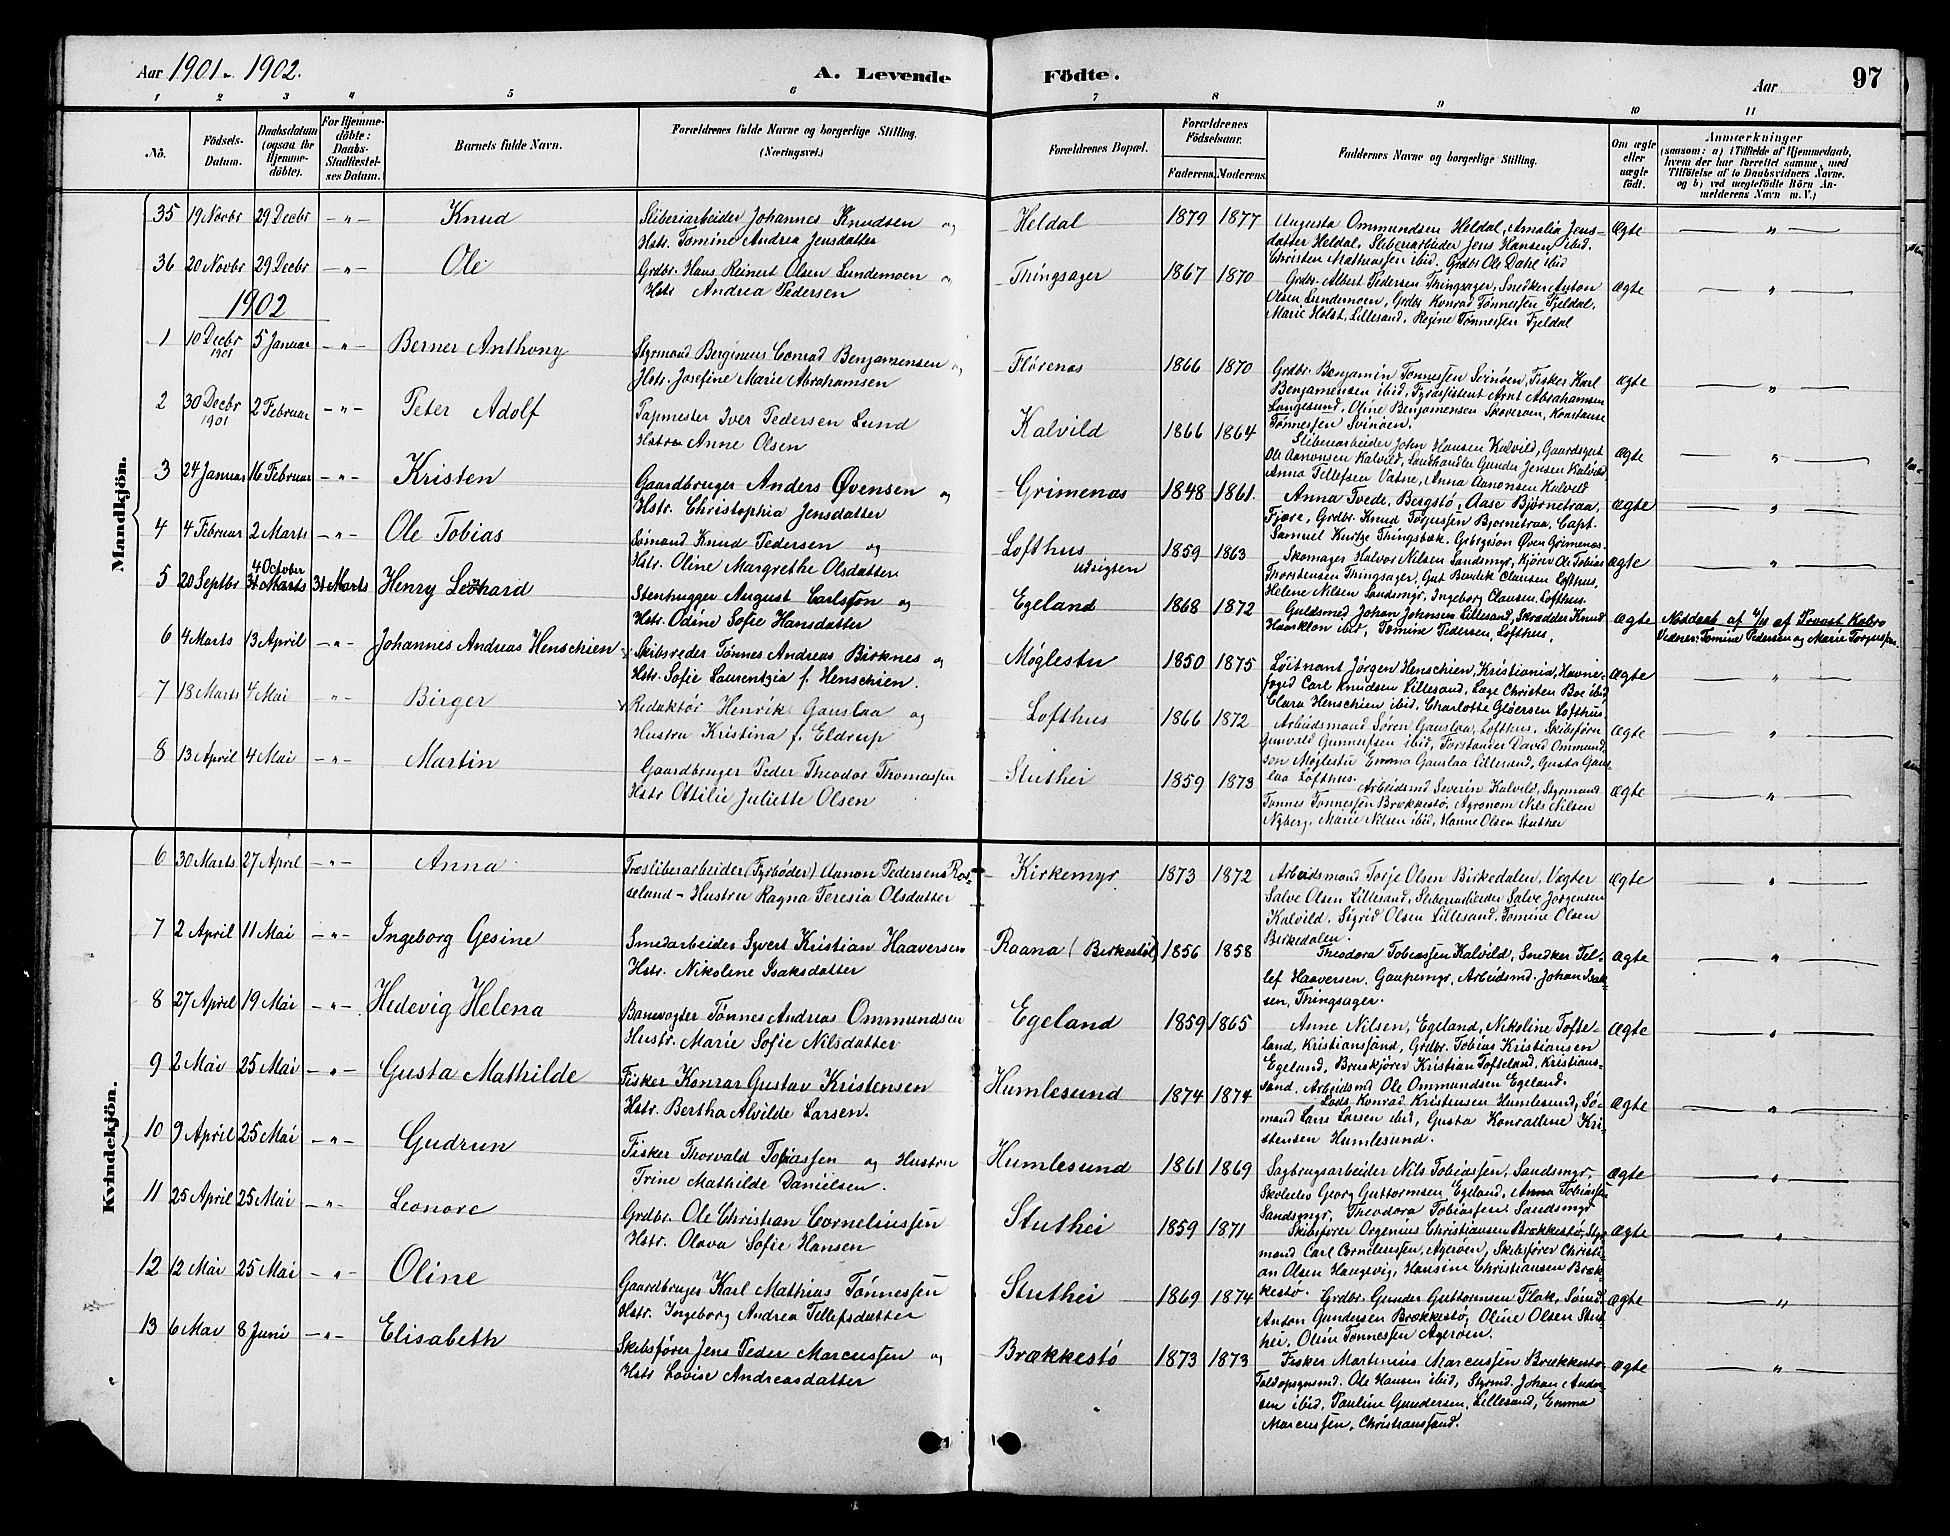 Aar 1901-1902.
A. Levende Födte.
Aar
97
1 2 3 4 5 6 7 8 9 10 11
No.
Födsels-Datum.
Daabsdatum (ogsaa for Hjemme-döbte).
For Hjemme-döbte: Daabs-Stadfæstel-ses Datum.
Barnets fulde Navn.
Forældrenes fulde Navne og borgerlige Stilling.
(Næringsvei.)
Forældrenes Bopæl.
Forældrenes Födselsaar.
Faderens. Moderens.
Faddernes Navne og borgerlige Stilling.
Om ægte eller uægte födt.
Anmærkninger
(saasom: a) i Tilfælde af Hjemmedaab,
hvem der har forrettet samme, med
Tilföielse af to Daabsvidners Navne,
og b) ved uægtefödte Börn An-
melderens Navn m. V.)
Mandkjön.
35 19 Novbr 29 Decbr -"- Knud
Sliberiarbeider Johannes Knudsen og
Hstr. Tomine Andrea Jensdatter
Heldal 1879 1877
Augusta Ommundsen Heldal, Amalia Jens-
datter Heldal, Sliberiarbeider Jens Hansen ibid.
Christen Mathiassen ibid. Grdbr Ole Dahl ibid
Ægte "
36 20 Novbr 29 Decbr -"- Ole
Grdbr. Hans Reinert Olsen Lundemoen og
Hstr Andrea Pedersen
Thingsager 1867 1870
Grdbr. Albert Pedersen Thingsager, Snedker Anton
Olsen Lundemoen, Grdbr Konrad Tønnessen Fjeldal,
Marie Holst, Lillesand, Regine Tønnessen Fjeldal
ægte "
1902
1 10 Decbr 1901 5 Januar -"- Berner Anthony
Styrmand Berginius Conrad Benjamensen og
Hstr. Josefine Marie Abrahamsen
Flørenæs 1866 1870
Grdbr. Benjamin Tønnessen Svinøen, Fisker Karl
Benjamensen ibid, Fyrassistent Arnt Abrahamsen
Langesund, Oline Benjamensen Skoverøen, Konstanse
Tønnessen Svinøen.
ægte "
2 30 Decbr 1901 2 Februar -"- Peter Adolf
Papmester Iver Pedersen Lund
Hstru Anne Olsen
Kalvild 1866 1864
Sliberiarbeider John Hansen Kalvild, Gaardsgut
Ole Aanonsen Kalvild, Landhandler Gunder Jensen Kalvild
Anna Tellefsen Vatne, Anna Aanonsen Kalvild
ægte "
3 24 Januar 16 Februar -"- Kristen
Gaardbruger Anders Øvensen og
Hstr. Christophia Jensdatter
Grimenæs 1848 1861
Anna Tvede, Bergstø, Aase Bjørnetraa,
Fjære, Grdbr. Knud Torgussen Bjørnetraa, Capt.
Samuel Thingsbæk, Øven Grimenæs
ægte "
4 4 Februar 2 Marts -"- Ole Tobias
Sømand Knud Pedersen og
Hstr. Oline Margrethe Olsdatter
Lofthus udsigten 1859 1863
Skomager Halvor Nilsen Sandsmyr, Ole Tobias
Thorstensen Thingsager, Gut Bendik Clausen Lofthus,
Helene Nilsen Sandsmyr, Ingeborg Clausen, Lofthus.
ægte "
5 20 Septbr 4 October 31 Marts 31 Marts Henry Leonard
Stenhugger August Carlsson og
Hstr. Odine Sofie Hansdatter
Egeland 1868 1872
Guldsmed Johan Johnsen Lillesand, Skrædder Knud
ibid, Tomine Pedersen, Lofthus,
ægte
Nøddaab af 4/10 af Provst Kalvo
Vidner: Tomine Pedersen og Marie Torgussen
6 4 Marts 13 April -"- Johannes Andreas Henschien
Skibsreder Tønnes Andreas Birknes og
Hstr. Sofie Laurentzia f. Henschien.
Møglestu 1850 1875
Løitnant Jørgen Henschien, Kristiania, Havne-
foged Carl Knudsen Lillesand, Læge Christen Boe ibid,
Clara Henschien ibid. Charlotte Gløersen Lofthus
ægte "
7 18 Marts 4 Mai "- Birger
Redaktør Henrik Gauslaa og
Hustru Kristina f. Eldrup
Lofthus 1866 1872
Arbeidsmand Søren Gauslaa, Lofthus. Skibsfører
Gunvald Gunnufsen ibid, Forstander David Ommund-
sen Møglestu Emma Gauslaa Lillesand, Gusta Gaus-
laa Lofthus.
ægte "
8 13 April 4 Mai -"- Martin
Gaardbruger Peder Theodor Thomassen
Hstr Ottilie Juliette Olsen
Stuthei 1859 1873
Arbeidsmd Severin Kalvild, Styrmand
Tønnes Tønnessen Brækkestø, Agronom Nils Nilsen
Nyberg, Marie Nilsen ibid, Hanne Olsen Stuthei
ægte "
Kvindekjön.
6 30 Marts 27 April -"- Anna
Træsliberarbeider (Fyrbøder) Aanon Pedersen Ros-
seland - Hustru Ragna Teresia Olsdatter
Kirkemyr 1873 1872
Arbeidsmand Torje Olsen Birkedalen, Vægter
Salve Olsen Lillesand, Sliberiarbeider Salve Jørgensen
Kalvild, Sigrid Olsen Lillesand, Tomine Olsen
Birkedalen.
ægte "
7 2 April 11 Mai -"- Ingeborg Gesine
Smedarbeider Syvert Kristian Haaversen
Hstr. Nikolene Isaksdatter
Raana (Birkestøl) 1856 1858
Theodora Tobiassen Kalvild, Snedker Tel-
lef Haaversen, Gaupemyr, Arbeidsmd. Johan Isak-
sen, Thingsager.
ægte "
8 27 April 19 Mai -"- Hedevig Helena
Banevogter Tønnes Andreas Ommundsen
Hustr. Marie Sofie Nilsdatter
Egeland 1859 1865
Anne Nilsen, Egeland, Nikoline Tofte-
land, Kristianssand, Grdbr. Tobias Kristiansen
Egeland, Kristian Tofteland, Kristians-
sand. Arbeidsmd Ole Ommundsen Egeland.
Ægte "
9 2 Mai 25 Mai -"- Gusta Mathilde
Fisker Konrar Gustav Kristensen
Hstr. Bertha Alvilde Larsen.
Humlesund 1874 1874
Lods Konrad Kristensen Humlesund, Sø-
mand Lars Larsen ibid, Gusta Konradine Kri-
stensen Humlesund.
ægte "
10 9 April 25 Mai -"- Gudrun
Fisker Thorvald Tobiassen og Hustru
Trine Mathilde Danielsen.
Humlesund 1861 1869
Sagbrugsarbeider Nils Tobiassen, Sandsmyr,
Skoleelev Georg Guttormsen Egeland, Anna Tobiassen
Sandsmyr, Theodora Tobiassen Sandsmyr
ægte "
11 25 April 25 Mai -"- Leonore
Grdbr. Ole Christian Corneliussen
Hstr. Olava Sofie Hansen
Stuthei 1859 1871
Skibsfører Orgenius Christiansen Brækkestø, Styr-
mand Carl Corneliussen, Agerøen, Skibsfører Christi-
an Olsen Haugevig, Hansine Christiansen Bræk-
kestø.
ægte "
12 12 Mai 25 Mai -"- Oline
Gaardbruger Karl Mathias Tønnessen
Hstr. Ingeborg Andrea Tellefsdatter
Stuthei 1869 1874
Grdbr. Gunder Guttormsen Flak, Sømd.
Anton Gundersen Brækkestø, Oline Olsen Stut-
hei, Oline Tønnessen Agerøen.
Ægte "
13 6 Mai 8 Juni -"- Elisabeth
Skibsfører Jens Peder Marcussen og
Hstr Lovise Andreasdatter
Brækkestø 1873 1873
Fisker Martinius Marcussen Brækkestø
Toldopsynsmd. Ole Hansen ibid, Styrmd. Johan Ander-
sen ibid, Pauline Gundersen, Lillesand, Emma
Marcussen, Christianssand.
ægte "